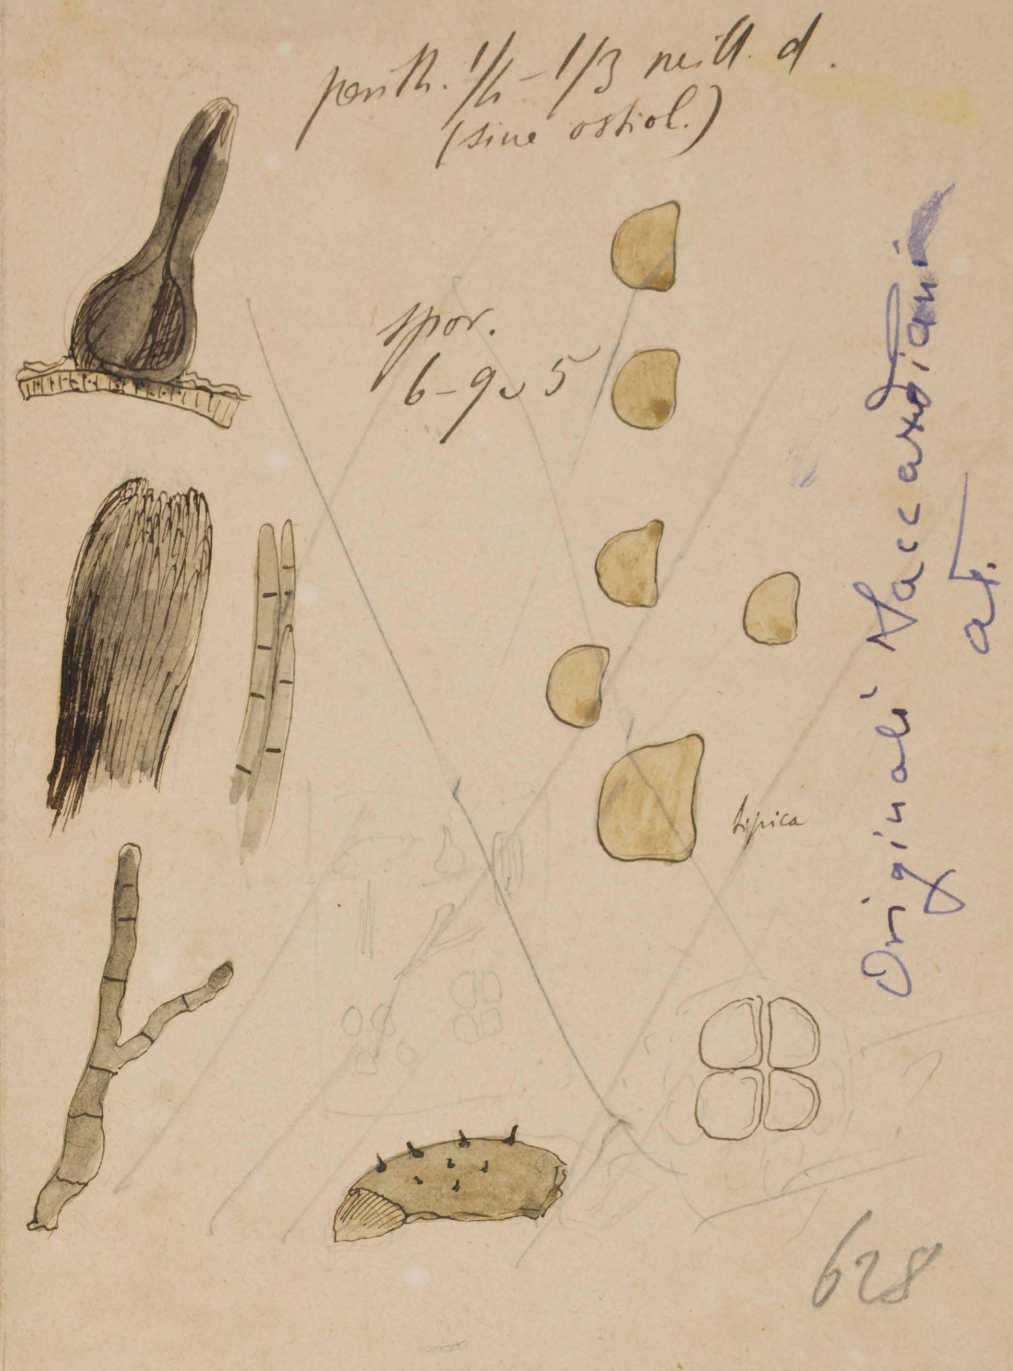 perith. 1/4 – 1/3 mill. d.
(sine ostiol.)
spor.
6–9 ⌣ 5
tipica
Originali Saccardiani
at.
628